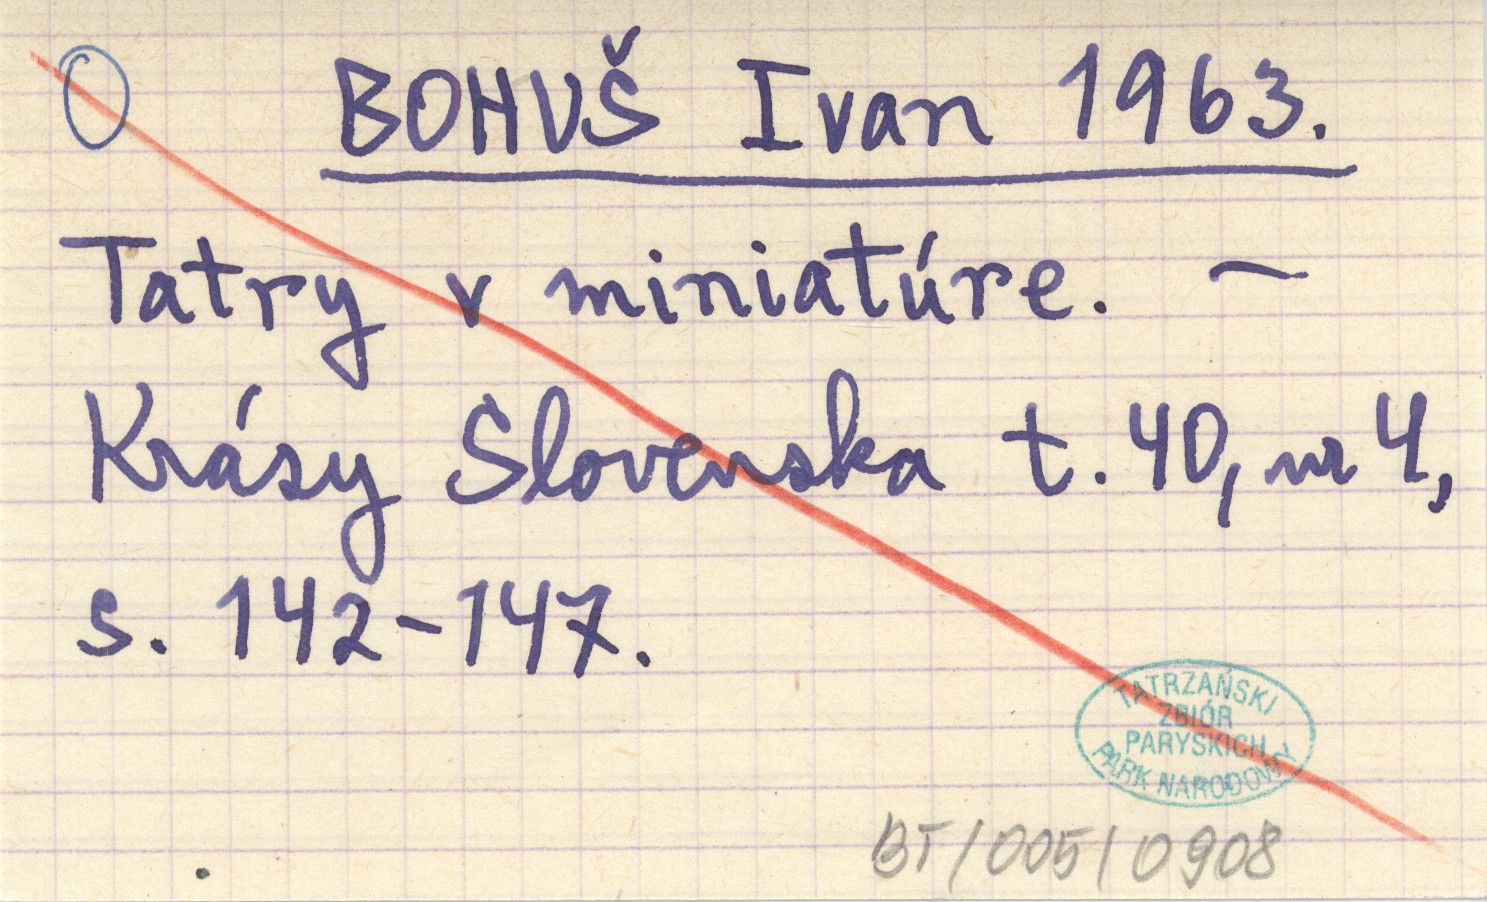 BOHUŠ Ivan 1963.
Tatry v miniatúre. —
Krásy Slovenska t. 40, nr 4,
s. 142-147.
TATRZAŃSKI
ZBIÓR
PARYSKICH
PARK NARODOWY
BT/005/0908